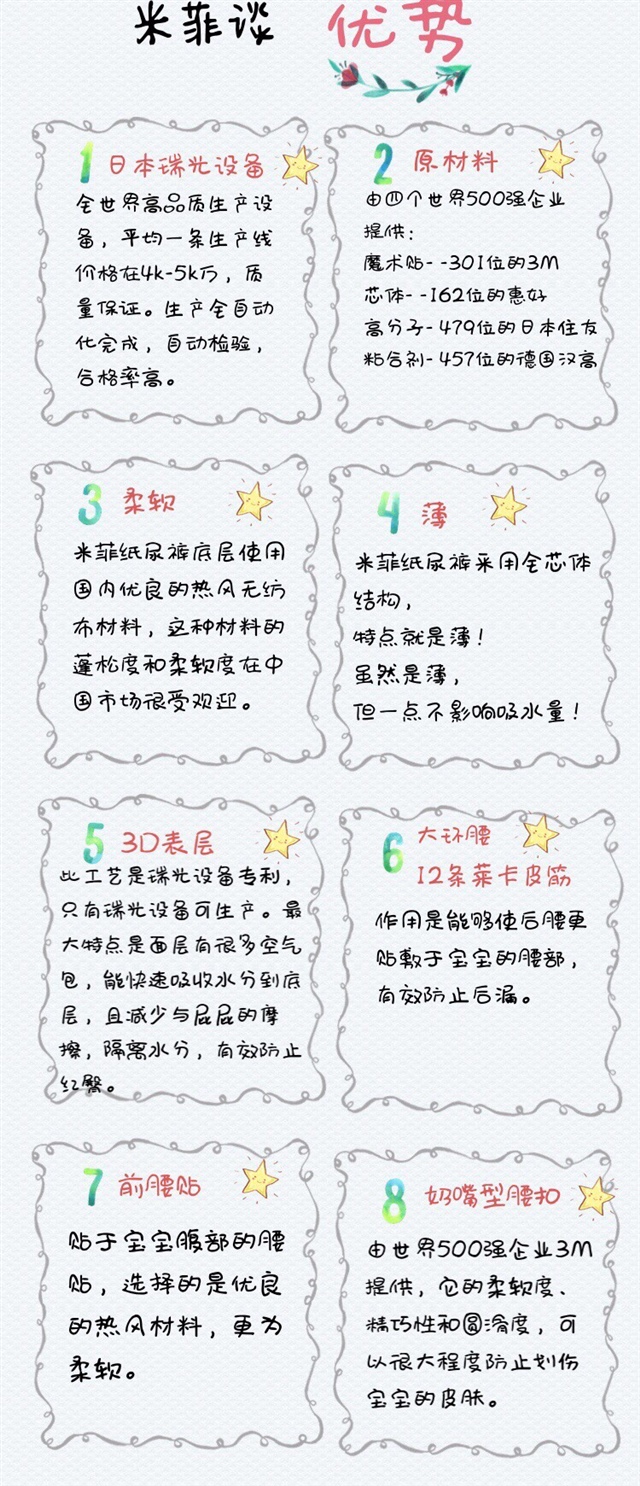 米菲谈 优势
1 日本瑞光设备
全世界高品质生产设
备，平均一条生产线
价格在4k-5k万，质
量保证。生产全自动
化完成，自动检验，
合格率高。
2 原材料
由四个世界500强企业
提供：
魔术贴--301位的3M
芯体--162位的惠好
高分子-479位的日本住友
粘合剂-457位的德国汉高
3 柔软
米菲纸尿裤底层使用
国内优良的热风无纺
布材料，这种材料的
蓬松度和柔软度在中
国市场很受欢迎。
4 薄
米菲纸尿裤采用全芯体
结构，
特点就是薄！
虽然是薄，
但一点不影响吸水量！
5 3D表层
此工艺是瑞光设备专利，
只有瑞光设备可生产。最
大特点是面层有很多空气
包，能快速吸收水分到底
层，且减少与屁屁的摩
擦，隔离水分，有效防止
红臀。
6 大环腰
12条莱卡皮筋
作用是能够使后腰更
贴敷于宝宝的腰部，
有效防止后漏。
7 前腰贴
贴于宝宝腹部的腰
贴，选择的是优良
的热风材料，更为
柔软。
8 奶嘴型腰扣
由世界500强企业3M
提供，它的柔软度、
精巧性和圆滑度，可
以很大程度防止划伤
宝宝的皮肤。